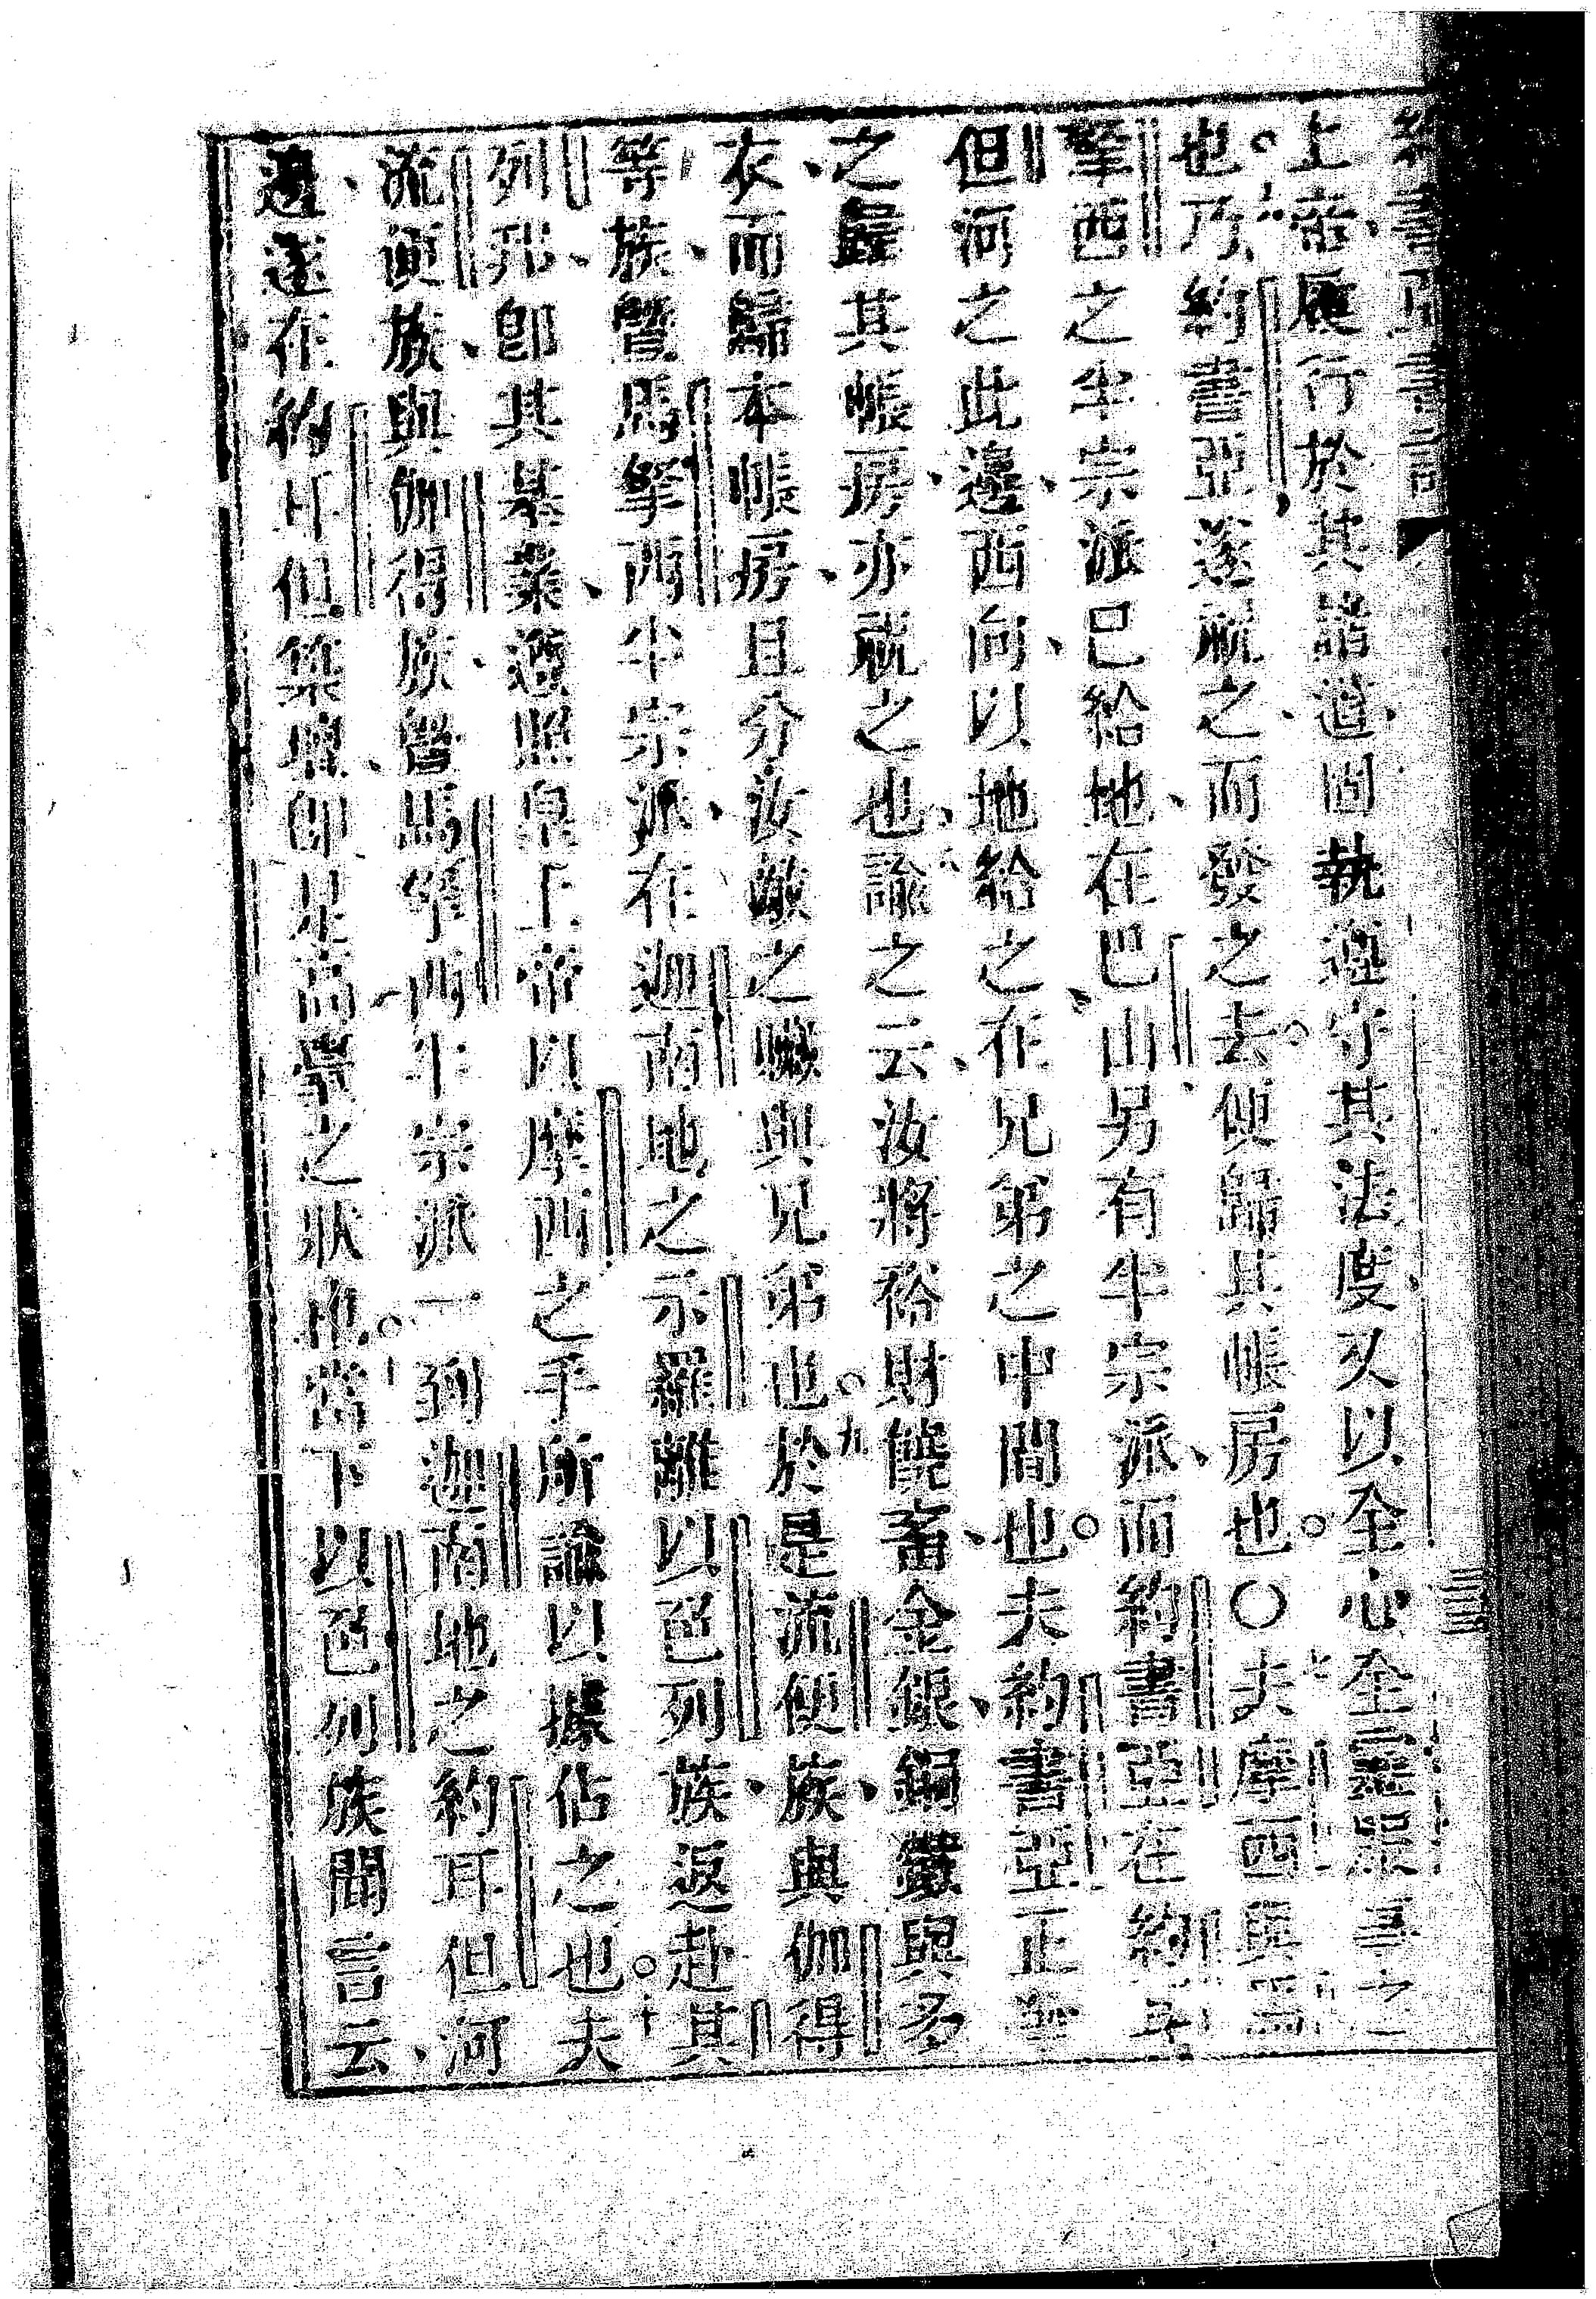 約書亞書記
上帝履行於其諸道固執遵守其法度又以全心全靈服事之
也六乃約書亞遂祝之而發之去便歸其帳房也〇七夫摩西與馬
拏西之半宗派已給地在巴山另有半宗派而約書亞在約耳
但河之此邊西向以地給之在兄弟之中間也夫約書亞正發
之歸其帳房亦祝之也八諭之云汝將裕財饒畜金銀銅鐵與多
衣而歸本帳房且分汝敵之贓與兄弟也九於是流便族與伽得
等族暨馬拏西半宗派在迦南地之示羅離以色列族返赴其
列邦卽其基業遵照皇上帝以摩西之手所諭以據佔之也十夫
流便族與伽得族曁馬拏西半宗派一到迦南地之約耳但河
邊遂在約耳但築壇卽是高景之狀也十一當下以色列族聞言云